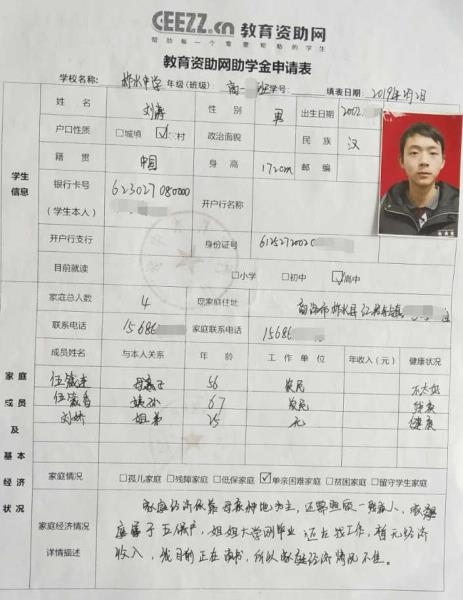 CEEZZ.cn 教育资助网
帮助每一个需要帮助的学生
教育资助网助学金申请表
学校名称: 柞水中学 年级(班级) 高一 班 学号: 填表日期 2019年 月2日
姓名 刘涛 性别 男 出生日期 2002.
户口性质 □城镇 ☑村 政治面貌 民族 汉
籍贯 中国 身高 172cm 邮编
学生信息
银行卡号(学生本人) 623027080000 开户行名称
开户行支行 身份证号 6125272002
目前就读 □小学 □初中 ☑高中
家庭总人数 4 现家庭住址 商洛市柞水县红岩寺镇
联系电话 15686 家庭联系电话 15686
成员姓名 与本人关系 年龄 工作单位 年收入(元) 健康状况
母子 56 农民
67 农民 残疾
刘娇 姐弟 25 无 健康
家庭成员及基本经济状况
家庭情况 □孤儿家庭 □残障家庭 □低保家庭 ☑单亲困难家庭 □贫困家庭 □留守学生家庭
家庭经济情况详情描述
家庭经济依靠母亲种地为主,还要照顾一残疾人,家庭
属于五保户,姐姐大学刚毕业还在找工作,暂无经济
收入,我目前正在读书,所以家庭经济情况不佳。